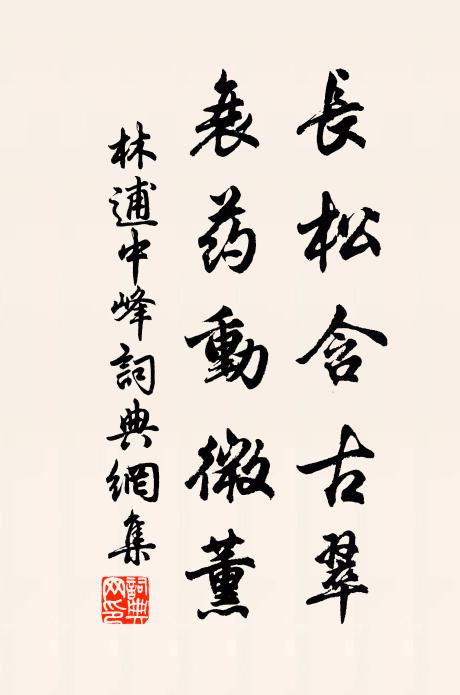 長松含古翠
衰药動微薰
林逋中峰詞典網集
詞典网印